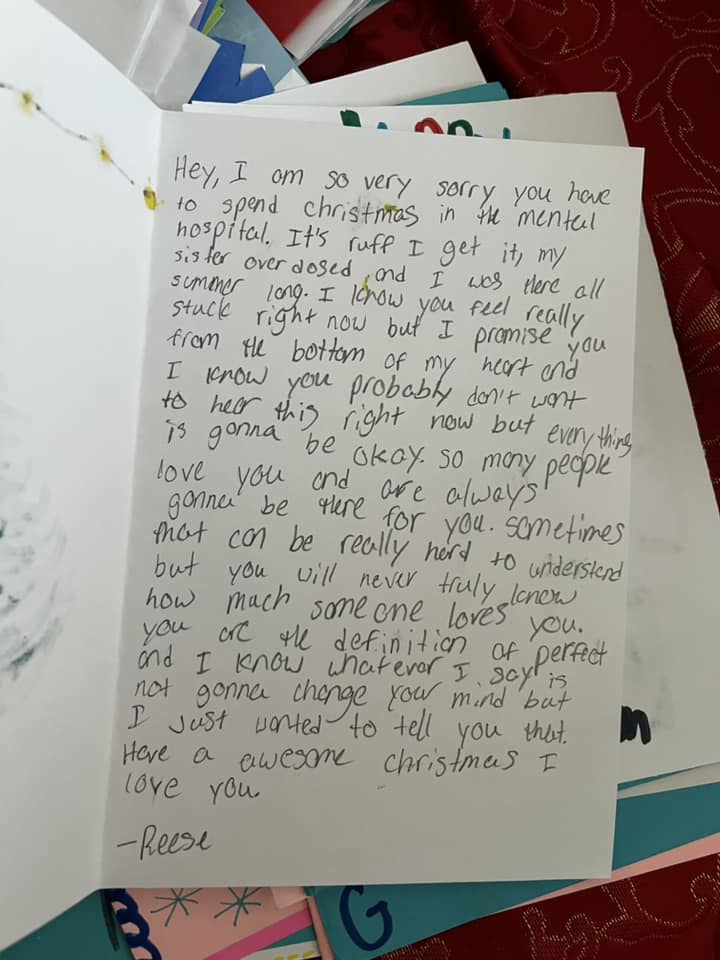 Hey, I am so very sorry you have
to spend christmas in the mental
hospital. It's ruff I get it, my
sister overdosed and I was there all
summer long. I know you feel really
stuck right now but I promise you
from the bottom of my heart and
I know you probably don't want
to hear this right now but everything
is gonna be okay. so many people
love you and are always
gonna be there for you. sometimes
that can be really hard to understand
but you will never truly know
how much someone loves you.
you are the definition of perfect
and I know whatever I say is
not gonna change your mind but
I just wanted to tell you that.
Have a awesome christmas I
love you.
-Reese
G